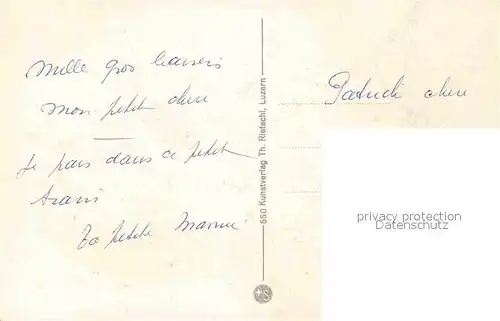 Mille gros baisers
mon petit cheri
Je pars dans ce petit
train
Ta petite Mamie
550 Kunstverlag Th. Ristschl, Luzern
Patrick cheri
privacy protection
Datenschutz